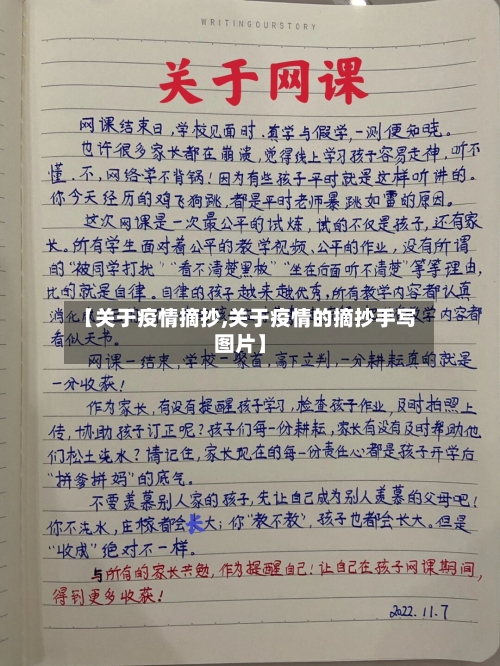 WRITINGOURSTORY
关于网课
网课结束日，学校见面时。真学与假学，一测便知晓。
也许很多家长都在崩溃，觉得线上学习孩子容易走神，听不
懂。不，网络学不背锅！因为有些孩子平时就是这样听讲的。
你今天经历的鸡飞狗跳，都是平时老师暴跳如雷的原因。
这次网课是一次最公平的试炼，试的不仅是孩子，还有家
长。所有学生面对着公平的教学视频、公平的作业，没有所谓
的“被同学打扰”“看不清楚黑板”“坐在后面听不清楚”等等理由，
比的就是自律。自律的孩子越来越优秀，所有教学内容都认真
消化
学内容都
【关于疫情摘抄,关于疫情的摘抄手写
图片】
看似天书。
网课一结束，学校一聚首，高下立判，一分耕耘真的就是
一分收获！
作为家长，有没有提醒孩子学习，检查孩子作业，及时拍照上
传，协助孩子订正呢？孩子们每一份耕耘，家长有没有及时帮助他
们松土浇水？请记住，家长现在的每一份责任心都是孩子开学后
“拼爹拼妈”的底气。
不要羡慕别人家的孩子，先让自己成为别人羡慕的父母吧！
你不浇水，庄稼都会长大；你“教不教”，孩子也都会长大。但是
“收成”绝对不一样。
与所有的家长共勉，作为提醒自己！让自己在孩子网课期间，
得到更多收获！
2022.11.7